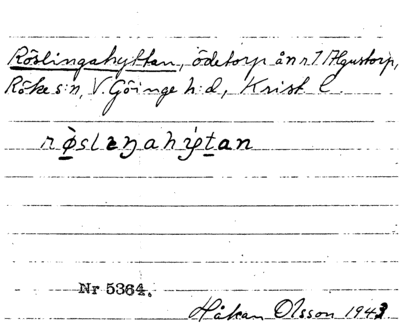 Röslingahyttan, ödetorp å nr 7 Algustorp,
Röke s:n, V. Göinge h:d, Krist. l.
Nr 5364.
Håkan Olsson 1943